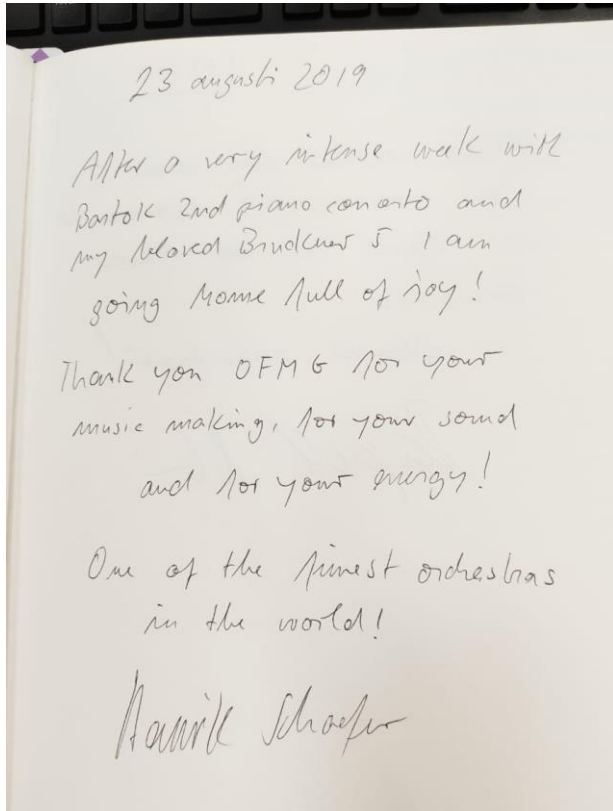 23 augusti 2019
After a very intense week with
Bartok 2nd piano concerto and
my beloved Bruckner 5 I am
going home full of joy!
Thank you OFMG for your
music making, for your sound
and for your energy!
One of the finest orchestras
in the world!
Henrik Schaefer